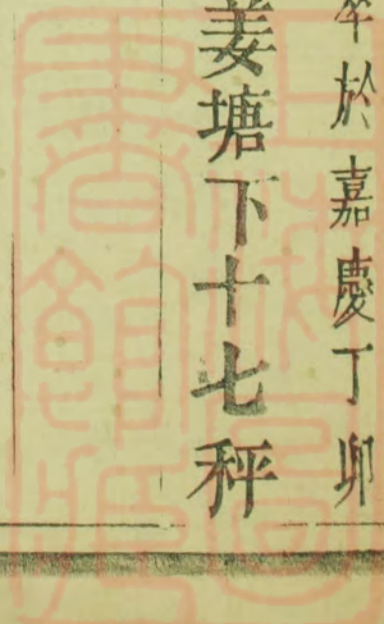 卒於嘉慶丁卯
姜塘下十七秤